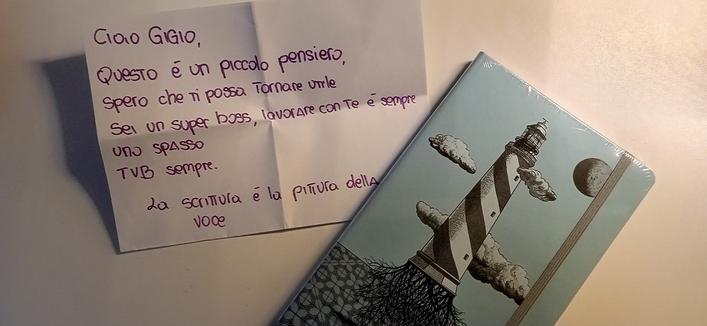 Ciao GIGIO,
Questo è un piccolo pensiero,
spero che ti possa tornare utile
Sei un super boss, lavorare con te è sempre
uno spasso
TVB sempre.
La scrittura è la pittura della
voce